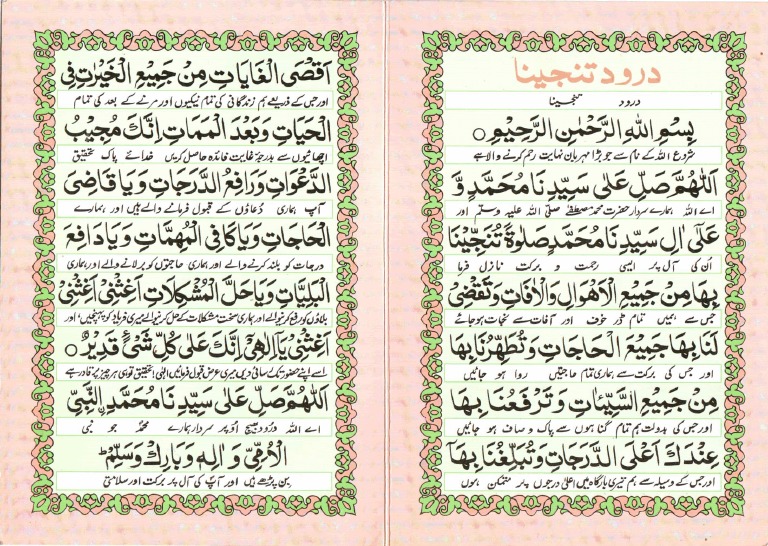 درود تنجینا
درود تنجینا
بِسْمِ اللهِ الرَّحْمٰنِ الرَّحِيْمِ
شروع اللہ کے نام سے جو بڑا مہربان نہایت رحم کرنے والا ہے
اَللّٰهُمَّ صَلِّ عَلٰى سَيِّدِنَا مُحَمَّدٍ وَّ
اے اللہ ہمارے سردار حضرت محمد مصطفےٰ صلی اللہ علیہ وسلم اور
عَلٰٓى اٰلِ سَيِّدِنَا مُحَمَّدٍ صَلٰوةً تُنَجِّيْنَا
اُن کی آل پر ایسی رحمت و برکت نازل فرما
بِهَا مِنْ جَمِيْعِ الْاَهْوَالِ وَالْاٰفَاتِ وَتَقْضِىْ
جس سے ہمیں تمام ڈر خوف اور آفات سے نجات ہو جائے
لَنَا بِهَا جَمِيْعَ الْحَاجَاتِ وَتُطَهِّرُنَا بِهَا
اور جس کی برکت سے ہماری تمام حاجتیں روا ہو جائیں
مِنْ جَمِيْعِ السَّيِّاٰتِ وَتَرْفَعُنَا بِهَا
اور جس کی بدولت ہم تمام گناہوں سے پاک و صاف ہو جائیں
عِنْدَكَ اَعْلَى الدَّرَجَاتِ وَتُبَلِّغُنَا بِهَا
اور جس کے وسیلہ سے ہم تیری بارگاہ میں اعلیٰ درجوں پر متمکن ہوں
اَقْصَى الْغَايَاتِ مِنْ جَمِيْعِ الْخَيْرٰتِ فِى
اور جس کے ذریعے ہم زندگانی کی تمام نیکیوں اور مرنے کے بعد کی تمام
الْحَيَاتِ وَبَعْدَ الْمَمَاتِ اِنَّكَ مُجِيْبُ
اچھائیوں سے بدرجۂ غایت فائدہ حاصل کریں خدائے پاک تحقیق
الدَّعْوَاتِ وَرَافِعُ الدَّرَجَاتِ وَيَا قَاضِىَ
آپ ہماری دُعاؤں کے قبول فرمانے والے ہیں اور ہمارے
الْحَاجَاتِ وَيَا كَافِىَ الْمُهِمَّاتِ وَيَا دَافِعَ
درجات کو بلند کرنے والے اور ہماری حاجتوں کو برلانے والے اور ہماری
الْبَلِيَّاتِ وَيَا حَلَّ الْمُشْكِلَاتِ اَغِثْنِىْ اَغِثْنِىْ
بلاؤں کو رفع کرنیوالے اور ہماری سخت مشکلات کے حل کرنیوالے میری فریاد کو پہنچیں اور
اَغِثْنِىْ يَآ اِلٰهِىْ اِنَّكَ عَلٰى كُلِّ شَىْءٍ قَدِيْرٌ
اسے اپنے حضور تک رسائی دیں میری عرض قبول فرمائیں الٰہی! تحقیق تو ہی ہر چیز پر قادر ہے
اَللّٰهُمَّ صَلِّ عَلٰى سَيِّدِنَا مُحَمَّدِ النَّبِىِّ
اے اللہ درُود بھیج اُوپر سردار ہمارے محمدؐ جو نبی
الْاُمِّىِّ وَاٰلِهٖ وَبَارِكْ وَسَلِّمْ
بن پڑھے ہیں اور آپؐ کی آل پر برکت اور سلامتی